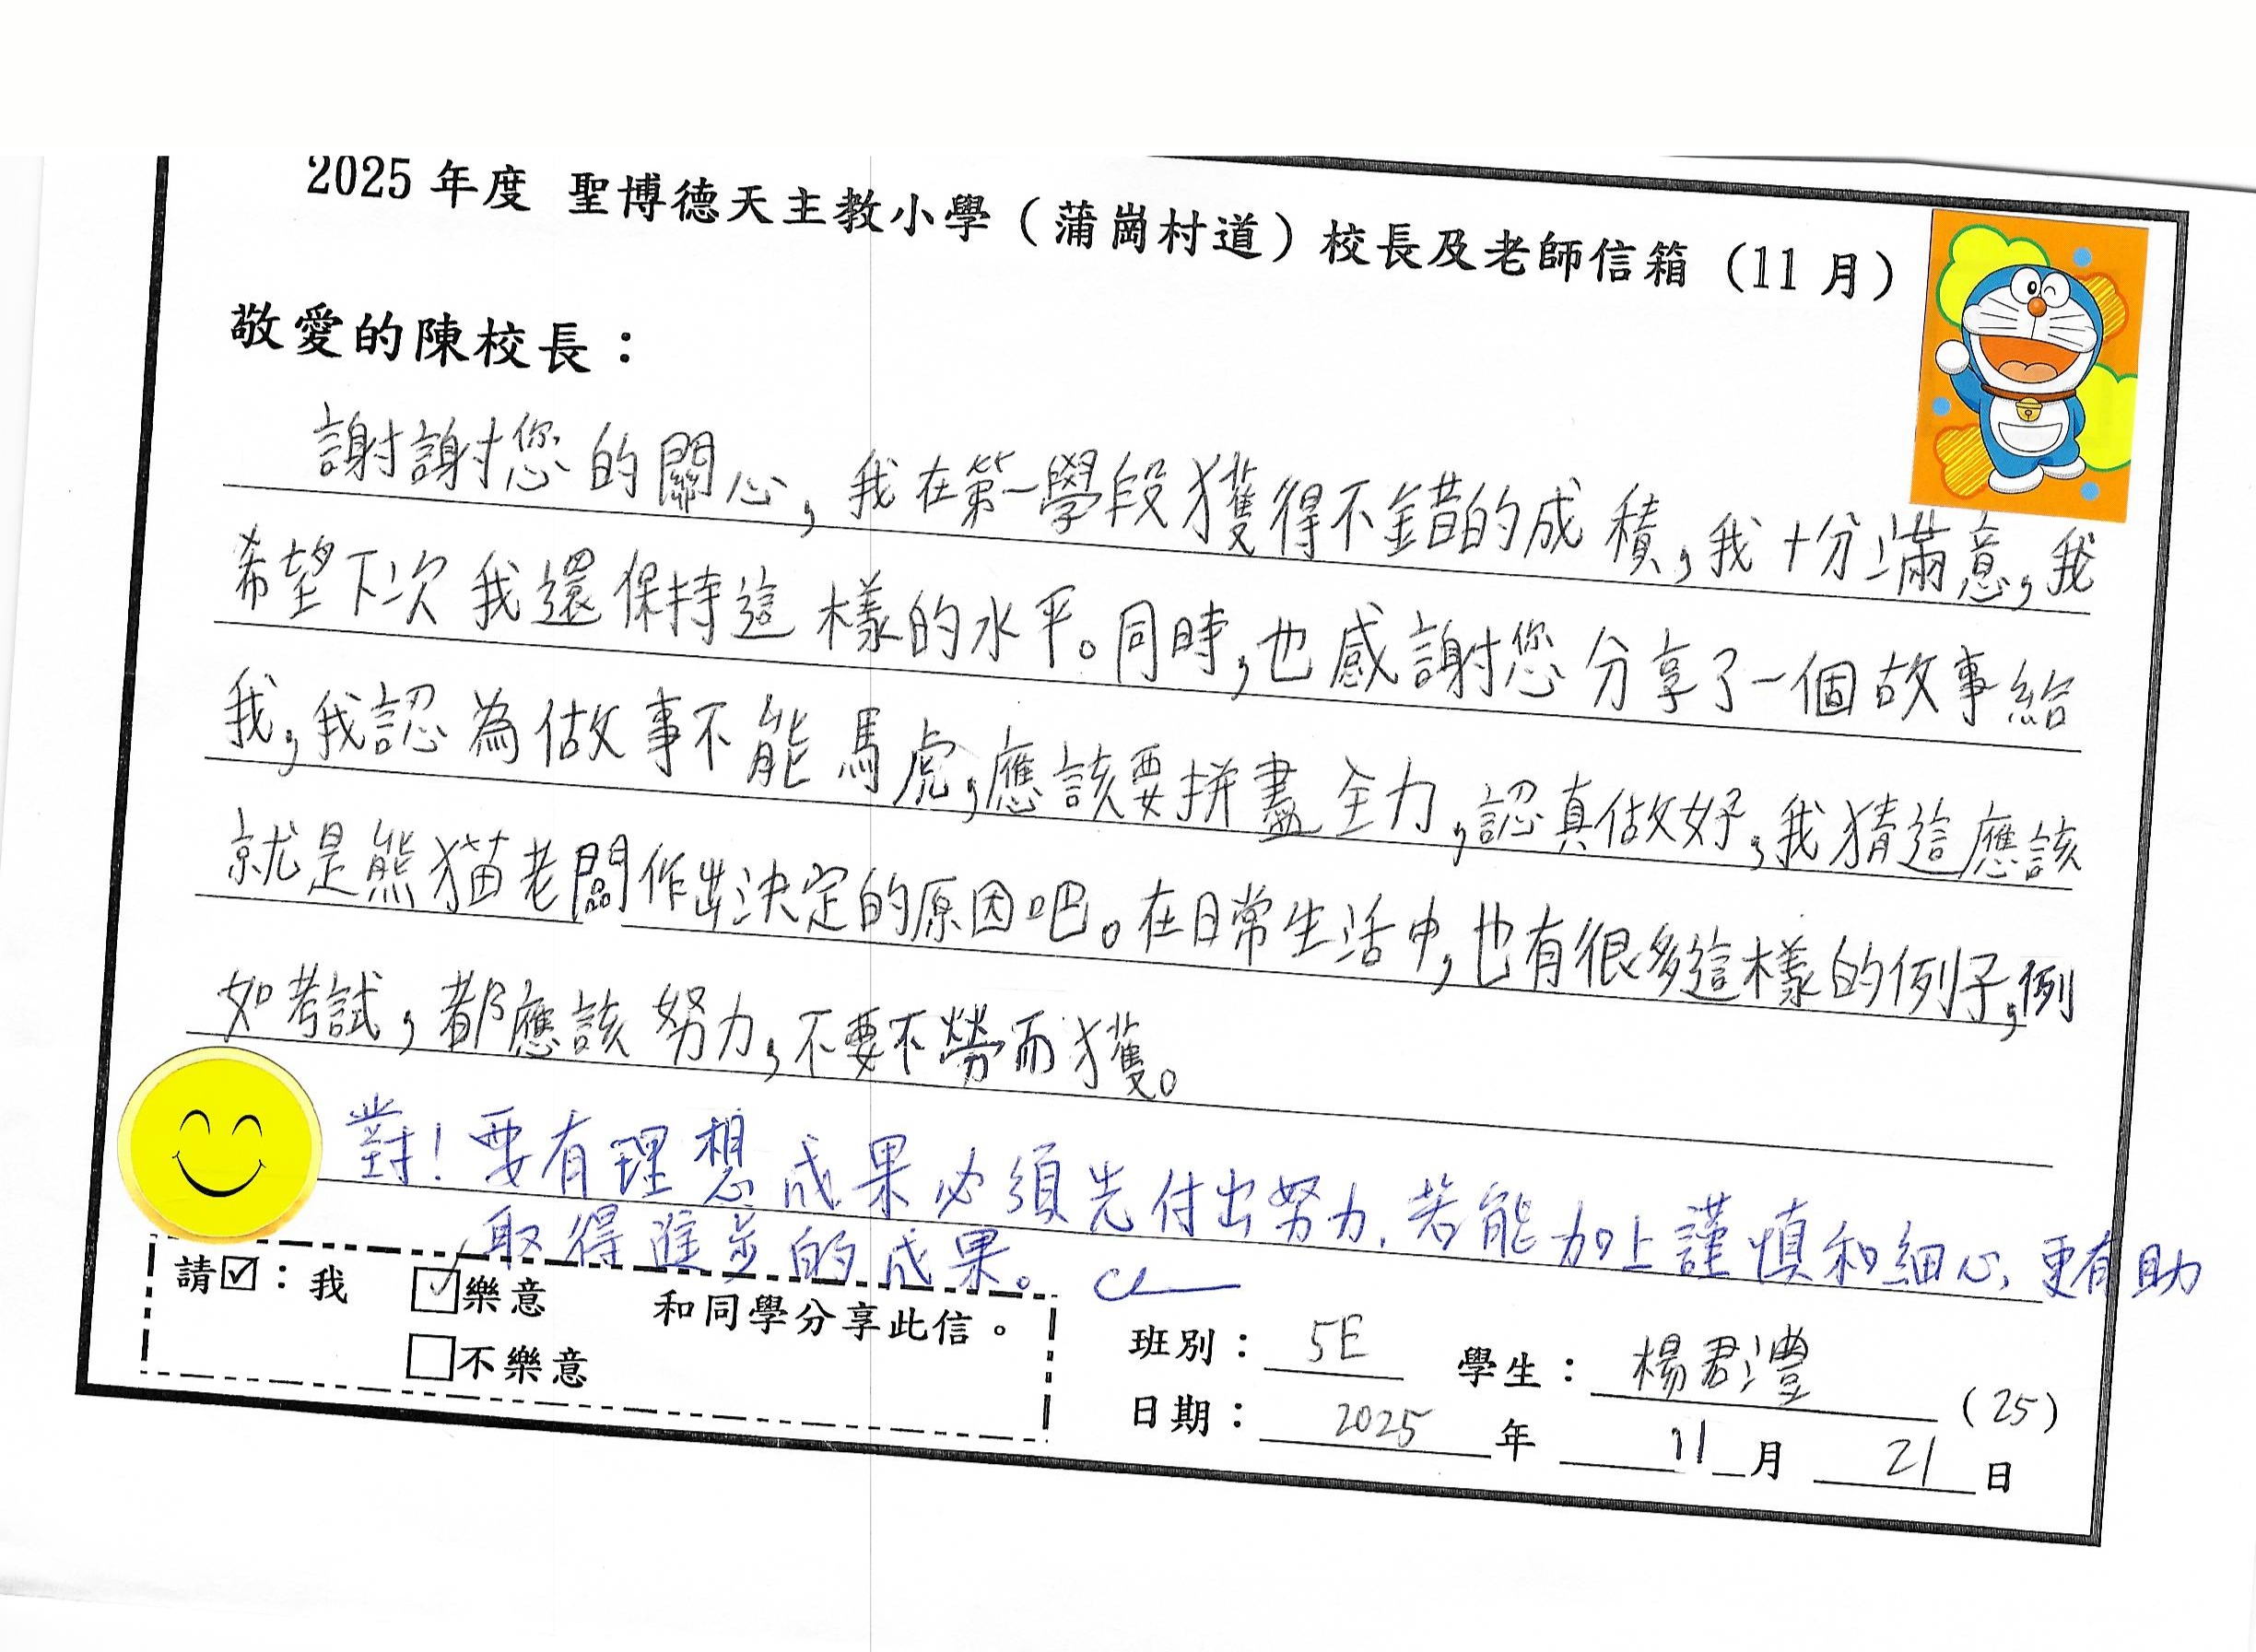 2025 年度 聖博德天主教小學（蒲崗村道）校長及老師信箱（11 月）
敬愛的陳校長：
謝謝您的關心，我在第一學段獲得不錯的成積，我十分滿意，我
希望下次我還保持這樣的水平。同時，也感謝您分享了一個故事給
我，我認為做事不能馬虎，應該要拼盡全力，認真做好，我猜這應該
就是熊貓老闆作出決定的原因吧。在日常生活中，也有很多這樣的例子，例
如考試，都應該努力，不要不勞而獲。
對！要有理想成果必須先付出努力，若能加上謹慎和細心，更有助
取得進步的成果。
請☑：我 ☑樂意 和同學分享此信。
□不樂意
班別：5E 學生：楊君灃（25）
日期：2025年11月21日